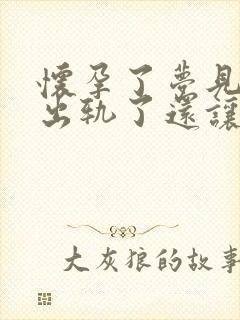 懷孕了夢見
出軌了還讓
大灰狼的故事